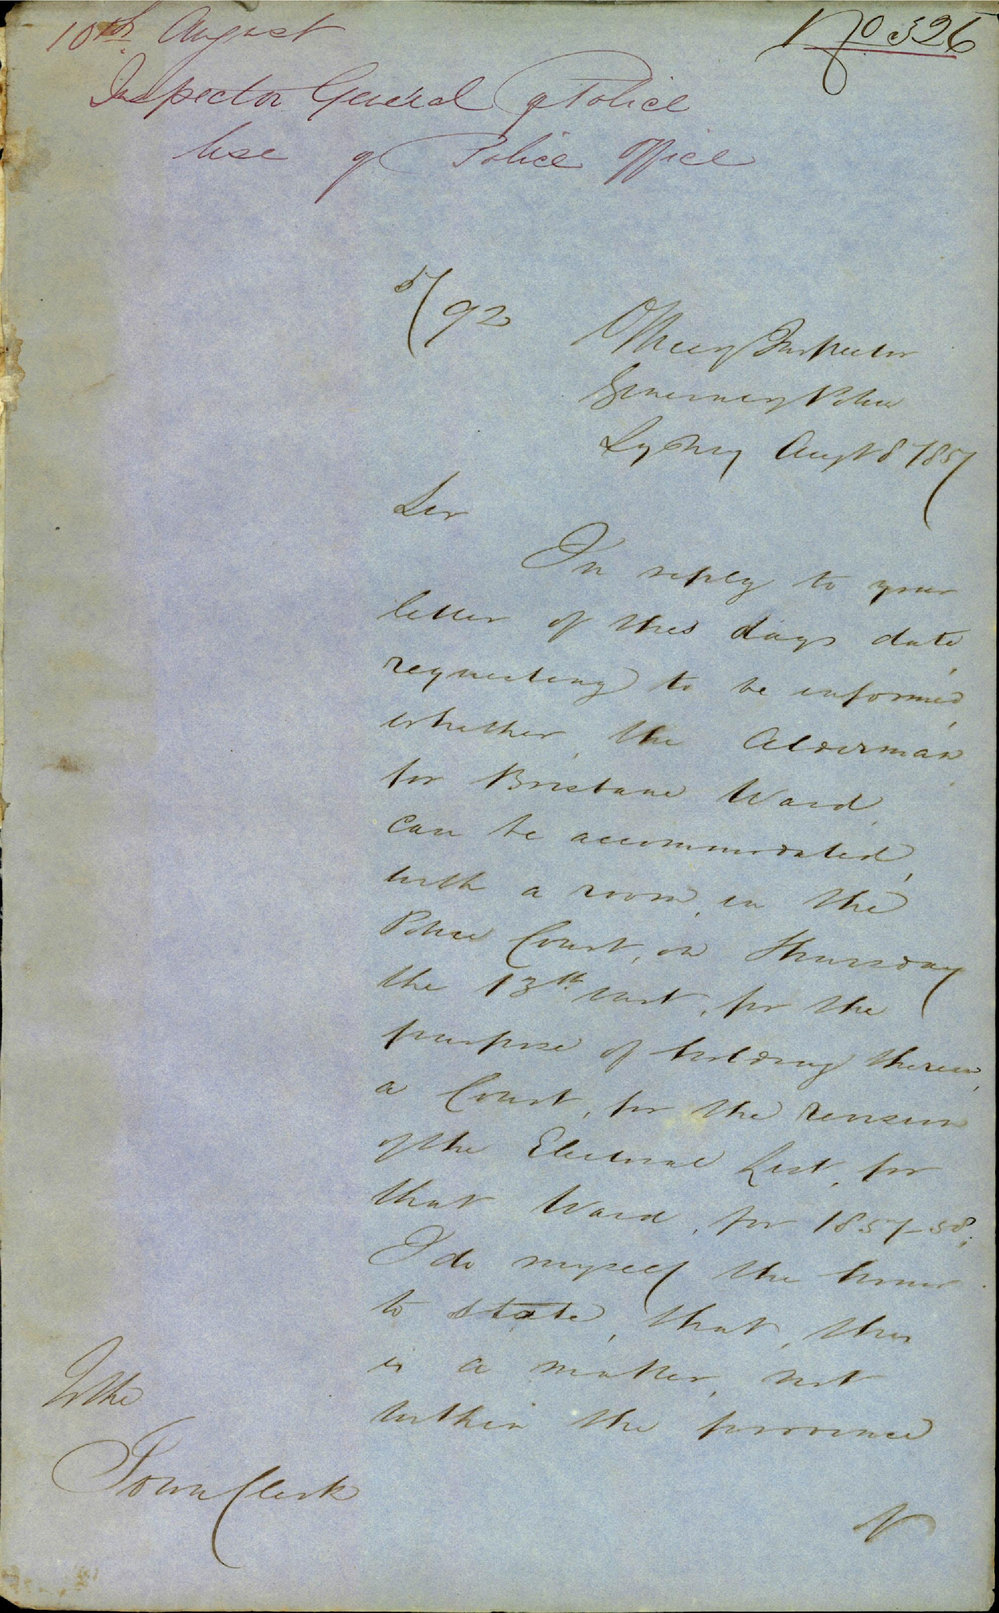 10th August
No 326
Inspector General of Police
Use of Police Office
57/92
Office of Inspector
General of Police
Sydney Augt 8 /57
Sir
In reply to your
letter of this days date,
requesting to be informed,
whether, the Alderman
for Brisbane Ward,
can be accommodated,
with a room, in the
Police Court, on Thursday
the 13th inst, for the
purpose of holding therein,
a Court, for the revision
of the Electoral List, for
that Ward, for 1857-58;
I do myself the honor
to state, that, this
is a matter, not
within the province
To the
Town Clerk